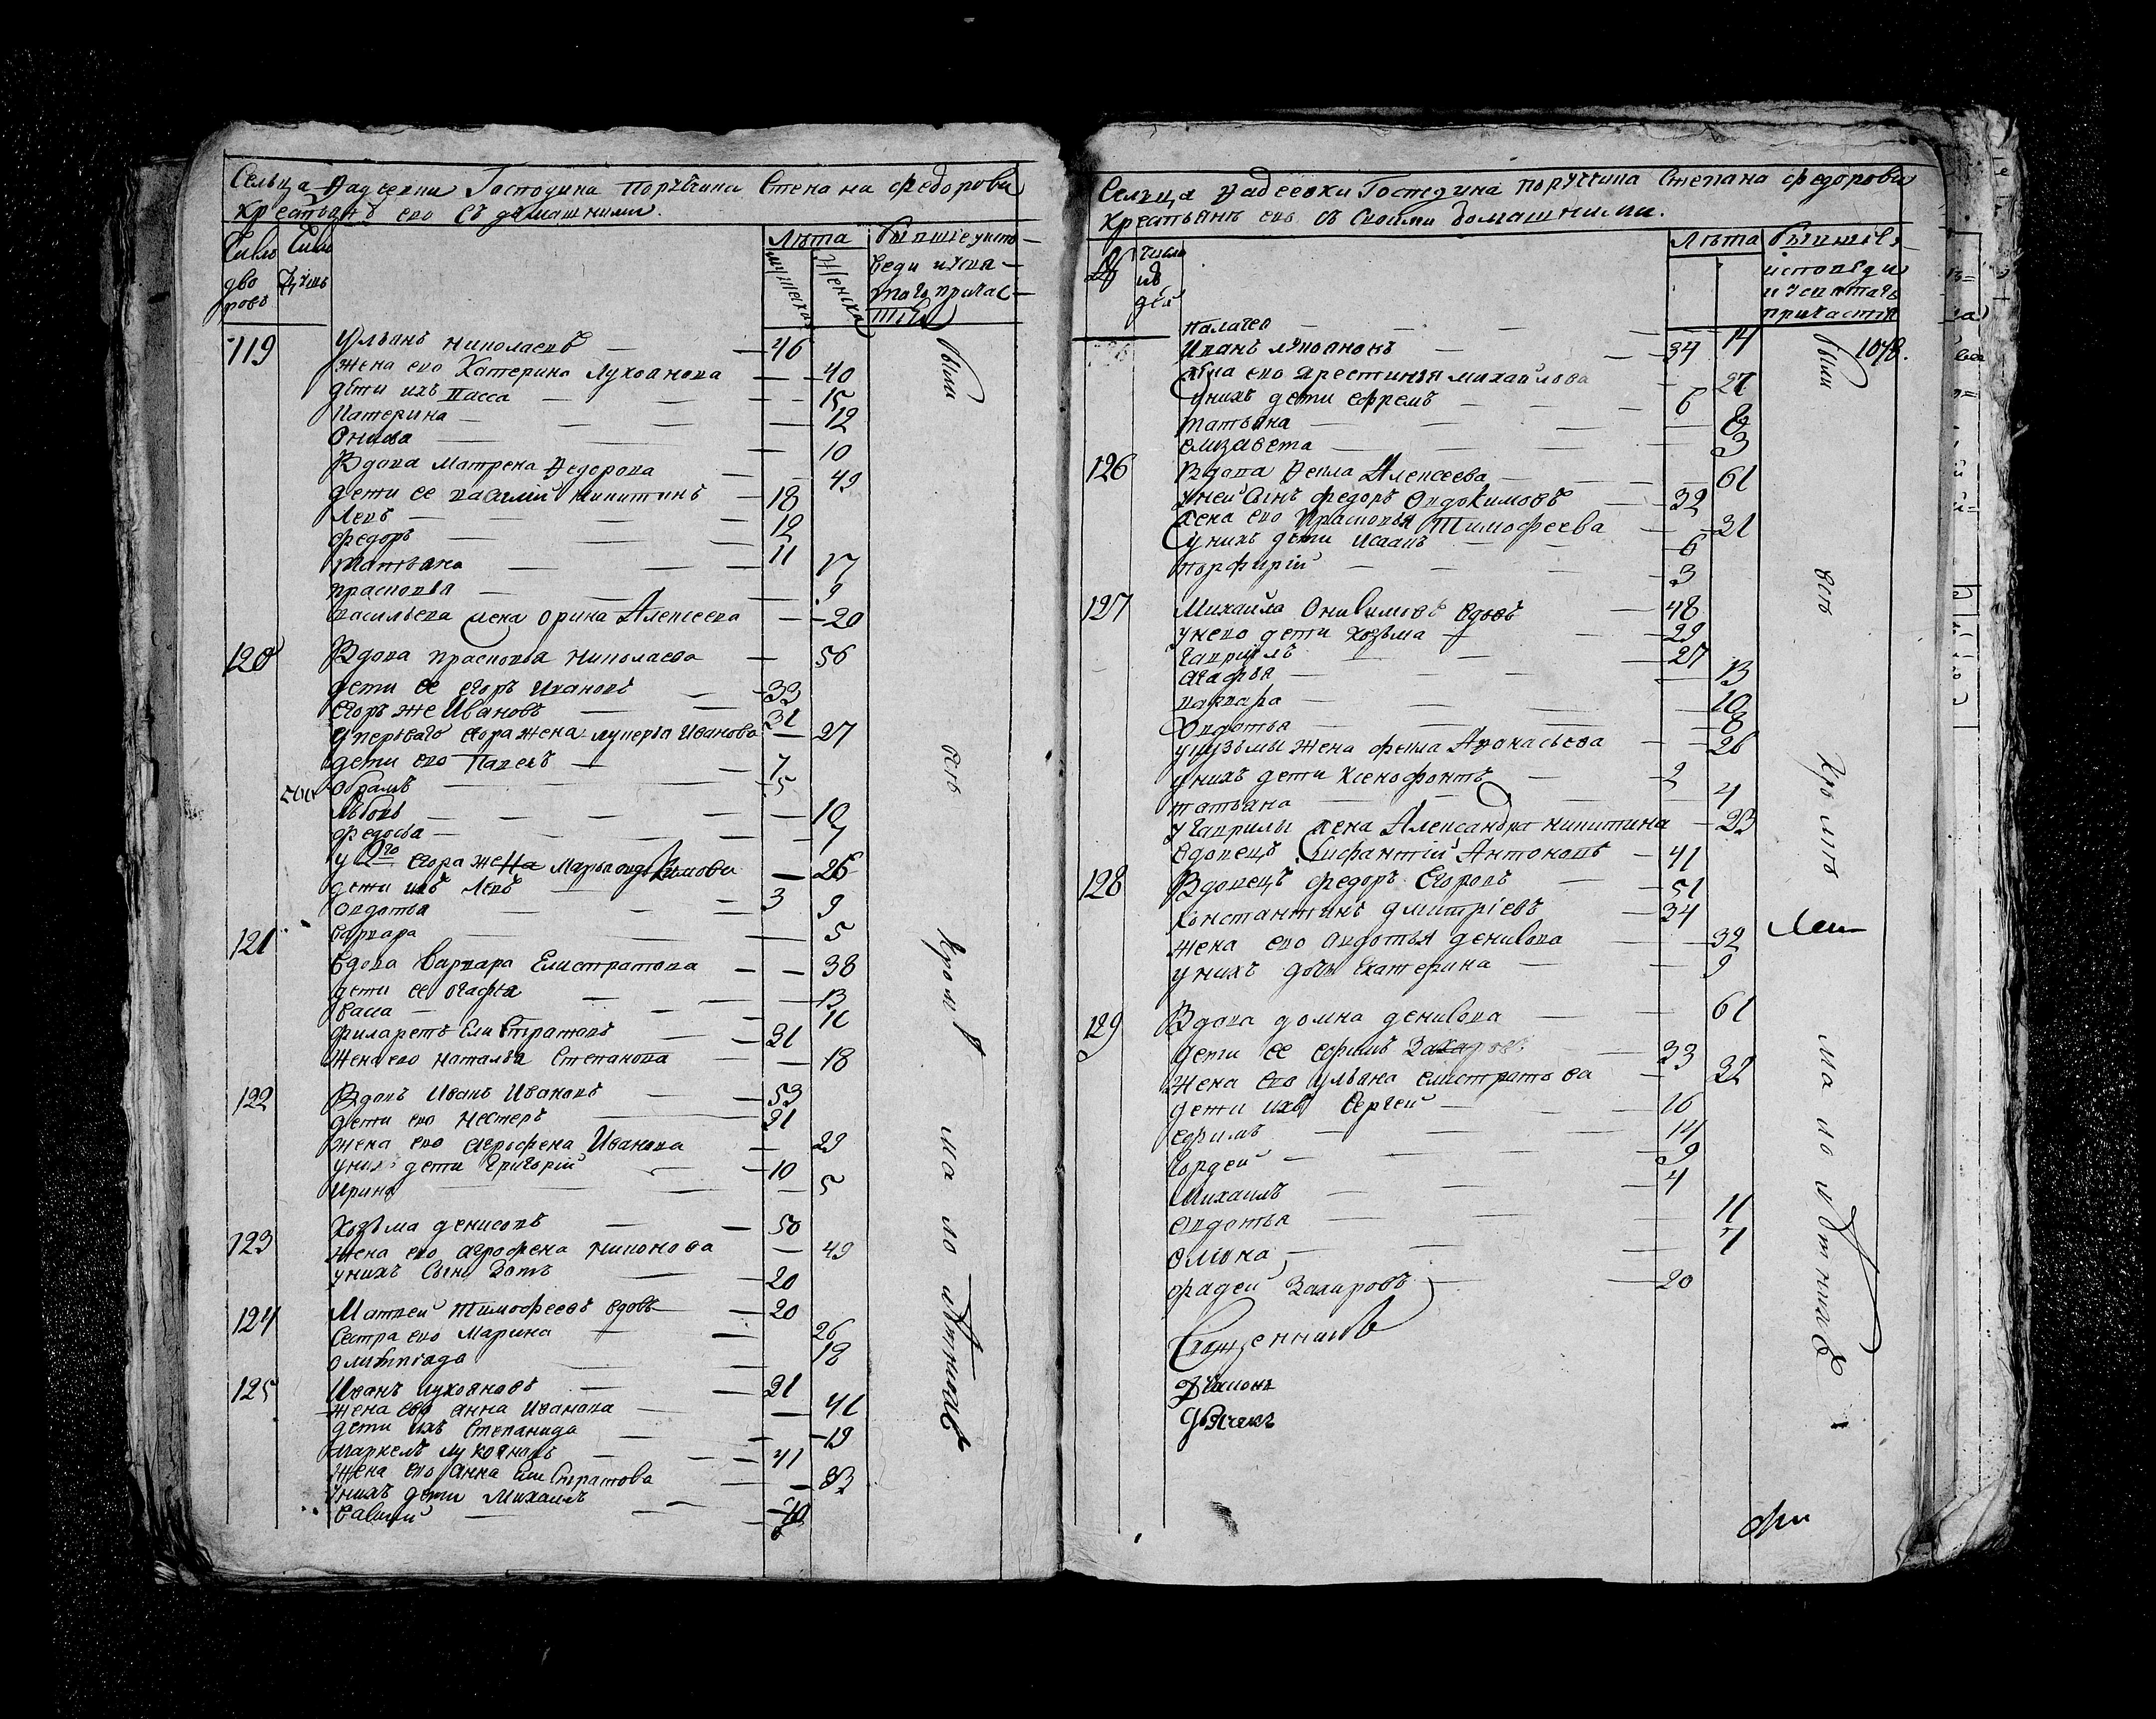 Сельца Фадеевки Господина порутчика Степана Федорова
крестьянъ ево съ домашними.
Число дворовъ
Число душъ
Лѣта
мужеска
женска
бывшіе у исповеди и святаго причастия
119
Ульянъ Николаевъ — 46
жена ево Катерина Лукоянова — 40
дети ихъ Васса — 15
Катерина — 12
Ониса — 10
Вдова Матрена Федорова — 49
дети ее Василій Никитинъ — 18
Левъ — 12
Федоръ — 11
Татьяна — 17
Прасковья — 9
Васильева жена Орина Алексеева — 20
120
Вдова Прасковья Николаева — 56
дети ее Егоръ Ивановъ — 33
Егоръ же Ивановъ — 31
у перваго Егора жена Лукерья Иванова — 27
дети ево Павелъ — 7
Абрамъ — 5
Любовь — 10
Федосья — 7
у 2го Егора жена Марья Овдокимова — 26
дети ихъ Левъ — 3
Овдотья — 9
121
Варвара — 5
Вдова Варвара Елистратова — 38
дети ее Огафья — 13
Васса — 11
Филаретъ Елистратовъ — 21
Жена ево Наталья Степанова — 18
122
Вдовъ Иванъ Ивановъ — 53
дети ево Нестеръ — 21
жена ево Агрофена Иванова — 29
у них дети Григорій — 10
Ирина — 5
123
Козьма Денисовъ — 50
Жена ево Агрофена Никонова — 49
у нихъ сынъ Зотъ — 20
124
Матвей Тимофеевъ вдовъ — 20
Сестра ево Марина — 26
Олимпиада — 18
125
Иванъ Лукояновъ — 21
жена ево Анна Иванова — 41
дети ихъ Степанида — 19
Маркелъ Лукояновъ — 41
Жена ево Анна Елистратова — 33
у нихъ дети Михаилъ — 10
Савелій
были
все
кроме
малолѣтнихъ
Сельца Фадеевки Господина порутчика Степана Федорова
крестьянъ ево съ своими домашними.
число
Лѣта
бывшіе исповеди и святаго причастія
Палагея — 14
Иванъ Лукояновъ — 34
жена ево Крестинья Михайлова — 27
у нихъ дети Ефремъ — 6
Татьяна — 8
Елизавета — 3
126
Вдова Фекла Алексеева — 61
у ней сынъ Федоръ Овдокимовъ — 32
жена ево Прасковья Тимофеева — 31
у нихъ дети Исаакъ — 6
Порфирій — 3
127
Михайла Онисимовъ вдовъ — 48
у нево дети Козьма — 29
Гаврилъ — 27
Агафья — 13
Варвара — 10
Овдотья — 8
у Кузьмы жена Фекла Афонасьева — 26
у нихъ дети Ксенофонтъ — 2
Татьяна — 4
у Гаврилы жена Александра Никитина — 23
Вдовецъ Антоновъ — 41
128
Вдовецъ Федоръ Егоровъ — 51
Константинъ Дмитріевъ — 34
жена ево Овдотья Денисова — 32
у нихъ дочь Екатерина — 9
129
Вдова Домна Денисова — 61
дети ее Ефимъ Захаровъ — 33
Жена ево Ульяна Елистратова — 32
дети ихъ Сергей — 16
Ефимъ — 14
Гордей — 9
Михаилъ — 4
Овдотья — 11
Олиона — 7
Фадей Захаровъ — 20
Священникъ
Диаконъ
Дьячекъ
1078.
были
все
кроме
малолѣтнихъ